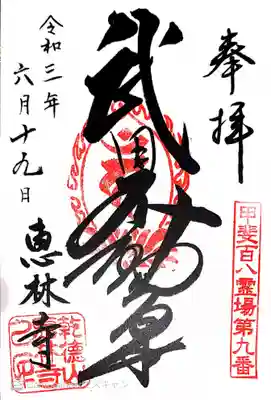 奉拝
甲斐百八霊場第九番
武田不動尊
令和三年
六月十九日
恵林寺
乾德山
スキャン